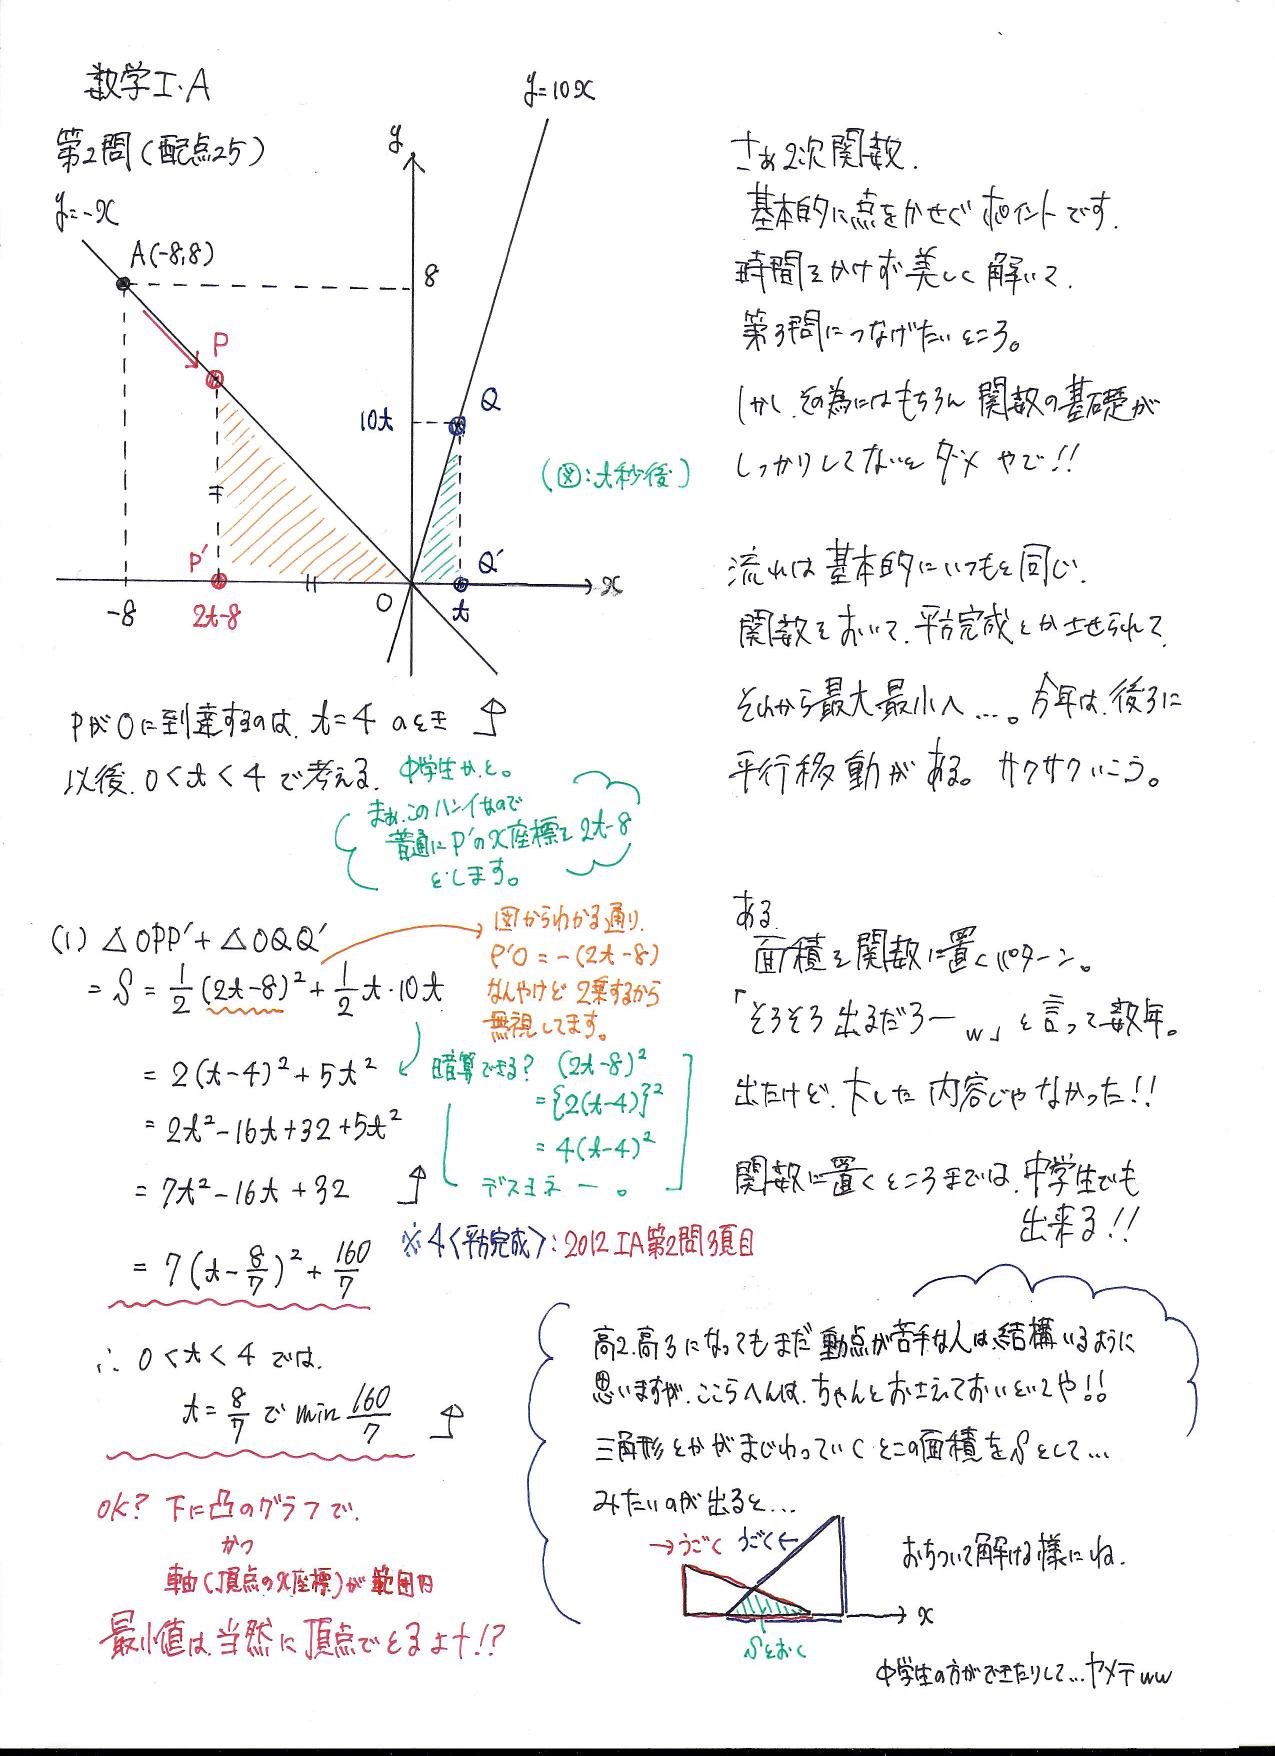 数学I・A
第2問(配点25)
y=-x
y=10x
y
A(-8,8)
8
P
10t
Q
(図:t秒後)
P'
Q'
-8
2t-8
O
t
x
PがOに到達するのは、t=4のとき
以後、0<t<4で考える。
中学生かと。
まぁ、このハンイなので
普通にP'のx座標を2t-8
とします。
(1) △OPP'+△OQQ'
= S = 1/2(2t-8)²+1/2t・10t
= 2(t-4)²+5t²
= 2t²-16t+32+5t²
= 7t²-16t+32
= 7(t-8/7)²+160/7
図からわかる通り、
P'O=-(2t-8)
なんやけど2乗するから
無視してます。
暗算できる? (2t-8)²
={2(t-4)}²
=4(t-4)²
デスヨネー。
※4<平方完成>:2012 IA第2問3項目
∴ 0<t<4では、
t=8/7でmin 160/7
OK? 下に凸のグラフで、
かつ
軸(頂点のx座標)が範囲内
最小値は、当然に頂点でとるよナ!?
さぁ2次関数。
基本的に点をかせぐポイントです。
時間をかけず美しく解いて、
第3問につなげたいところ。
しかし、その為にはもちろん関数の基礎が
しっかりしてないとダメやで!!
流れは基本的にいつもと同じ。
関数をおいて、平方完成とかさせられて、
それから最大最小へ…。今年は、後ろに
平行移動がある。サクサクいこう。
ある、
面積を関数に置くパターン。
「そろそろ出るだろーw」と言って数年。
出たけど、大した内容じゃなかった!!
関数に置くところまでは、中学生でも
出来る!!
高2、高3になってもまだ動点が苦手な人は、結構いるように
思いますが、ここらへんは、ちゃんとおさえておいといてや!!
三角形とかがまじわっていくとこの面積をSとして…
みたいのが出ると…
→うごく
うごく←
x
Sとおく
おちついて解ける様にね。
中学生の方ができたりして…ヤメテww